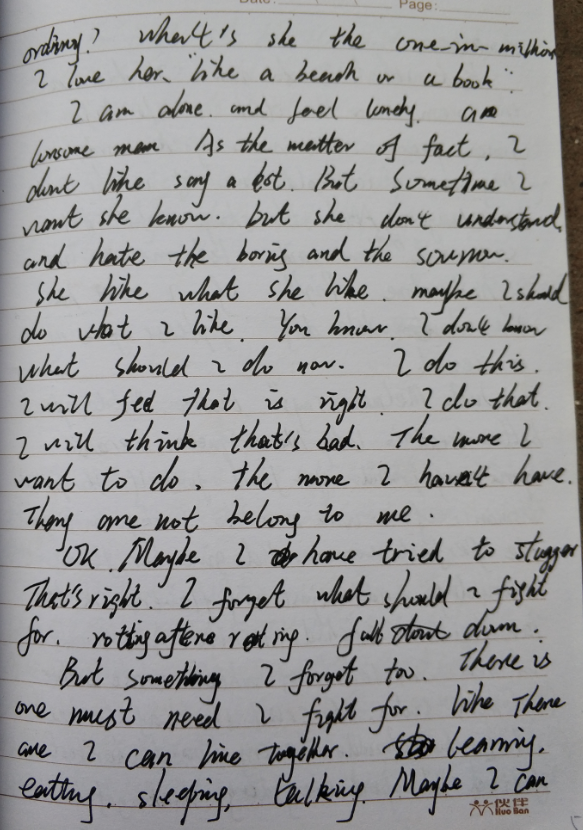 Date: Page:
ordinary? what's she the one-in-million
I love her "like a beach or a book".
I am alone. and feel lonely. a
lonsome man As the matter of fact, I
don't like sany a lot. But Sometime I
want she know. but she don't understand,
and hate the boring and the
She like what she like. maybe I should
do what I like. You know. I don't know
what should I do now. I do this.
I will feel that is right. I do that.
I will think that's bad. The more I
want to do, the more I haven't have.
They are not belong to me.
OK. Maybe I have tried to stugger
That's right. I forget what should I fight
for. rotting after rotting. fall down.
But something I forgot too. There is
one must need I fight for. like There
are I can live together. learning,
eatting, sleeping, talking. Maybe I can
伙伴
Huo Ban